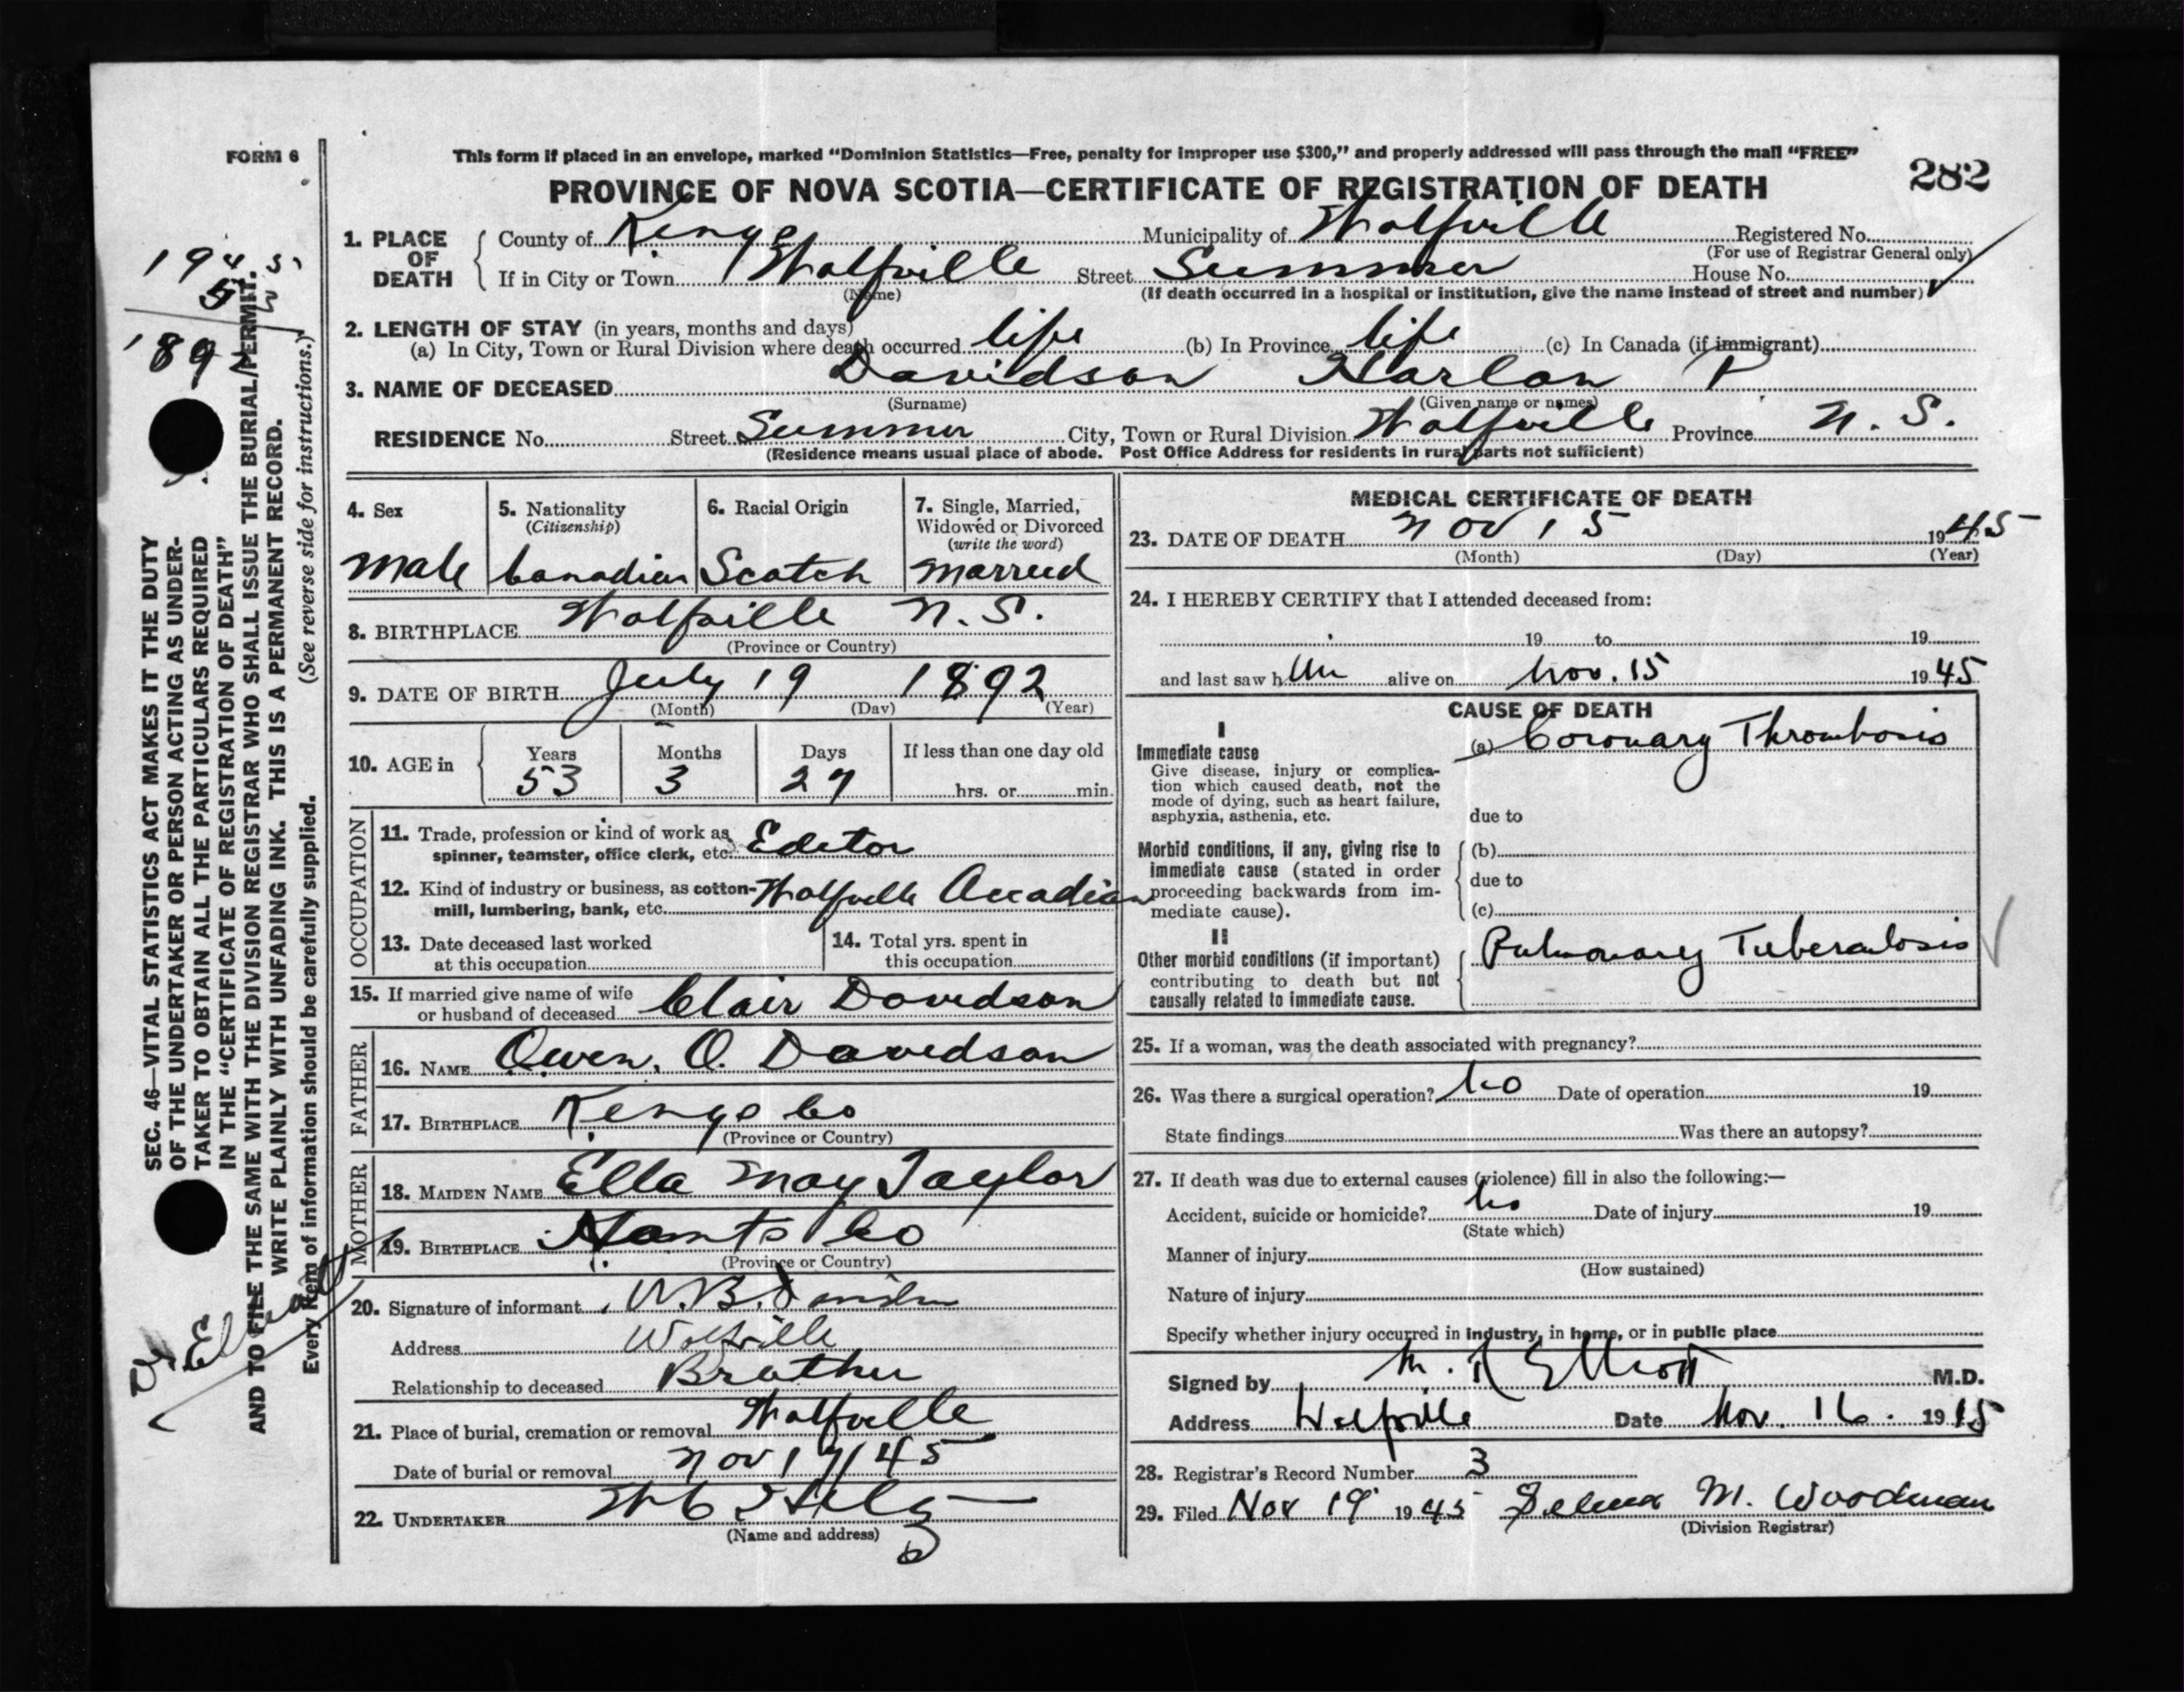 FORM 6
This form if placed in an envelope, marked "Dominion Statistics—Free, penalty for improper use $300," and properly addressed will pass through the mail "FREE"
PROVINCE OF NOVA SCOTIA—CERTIFICATE OF REGISTRATION OF DEATH
282
1. PLACE OF DEATH
County of Kings Municipality of Wolfville Registered No.
(For use of Registrar General only)
If in City or Town Wolfville Street Summer House No.
(Name) (If death occurred in a hospital or institution, give the name instead of street and number)
2. LENGTH OF STAY (in years, months and days)
(a) In City, Town or Rural Division where death occurred life (b) In Province life (c) In Canada (if immigrant)
3. NAME OF DECEASED Davidson Harlan P
(Surname) (Given name or names)
RESIDENCE No. Street Summer City, Town or Rural Division Wolfville Province N. S.
(Residence means usual place of abode. Post Office Address for residents in rural parts not sufficient)
4. Sex
Male
5. Nationality
(Citizenship)
Canadian
6. Racial Origin
Scotch
7. Single, Married,
Widowed or Divorced
(write the word)
Married
8. BIRTHPLACE Wolfville N. S.
(Province or Country)
9. DATE OF BIRTH July 19 1892
(Month) (Day) (Year)
10. AGE in
Years Months Days If less than one day old
53 3 27 hrs. or min.
OCCUPATION
11. Trade, profession or kind of work as Editor
spinner, teamster, office clerk, etc.
12. Kind of industry or business, as cotton- Wolfville Accadian
mill, lumbering, bank, etc.
13. Date deceased last worked
at this occupation
14. Total yrs. spent in
this occupation
15. If married give name of wife
or husband of deceased Clair Davidson
FATHER
16. NAME Owen. O. Davidson
17. BIRTHPLACE Kings Co
(Province or Country)
MOTHER
18. MAIDEN NAME Ella May Taylor
19. BIRTHPLACE Hants Co
(Province or Country)
20. Signature of informant B. Davidson
Address Wolfville
Relationship to deceased Brother
21. Place of burial, cremation or removal Wolfville
Date of burial or removal Nov 17/45
22. UNDERTAKER
(Name and address)
MEDICAL CERTIFICATE OF DEATH
23. DATE OF DEATH Nov 15 1945
(Month) (Day) (Year)
24. I HEREBY CERTIFY that I attended deceased from:
19 to 19
and last saw him alive on Nov. 15 1945
CAUSE OF DEATH
I
Immediate cause
(a) Coronary Thrombosis
Give disease, injury or complica-
tion which caused death, not the
mode of dying, such as heart failure,
asphyxia, asthenia, etc.
due to
Morbid conditions, if any, giving rise to
immediate cause (stated in order
proceeding backwards from im-
mediate cause).
(b)
due to
(c)
II
Other morbid conditions (if important)
contributing to death but not
causally related to immediate cause.
Pulmonary Tuberculosis
25. If a woman, was the death associated with pregnancy?
26. Was there a surgical operation? no Date of operation 19
State findings Was there an autopsy?
27. If death was due to external causes (violence) fill in also the following:—
Accident, suicide or homicide? no Date of injury 19
(State which)
Manner of injury
(How sustained)
Nature of injury
Specify whether injury occurred in industry, in home, or in public place
Signed by M. R Elliott M.D.
Address Wolfville Date Nov. 16. 1945
28. Registrar's Record Number 3
29. Filed Nov 19 1945 M. Woodman
(Division Registrar)
SEC. 46—VITAL STATISTICS ACT MAKES IT THE DUTY
OF THE UNDERTAKER OR PERSON ACTING AS UNDER-
TAKER TO OBTAIN ALL THE PARTICULARS REQUIRED
IN THE "CERTIFICATE OF REGISTRATION OF DEATH"
AND TO FILE THE SAME WITH THE DIVISION REGISTRAR WHO SHALL ISSUE THE BURIAL PERMIT.
WRITE PLAINLY WITH UNFADING INK. THIS IS A PERMANENT RECORD.
Every item of information should be carefully supplied. (See reverse side for instructions.)
Dr. Elliott